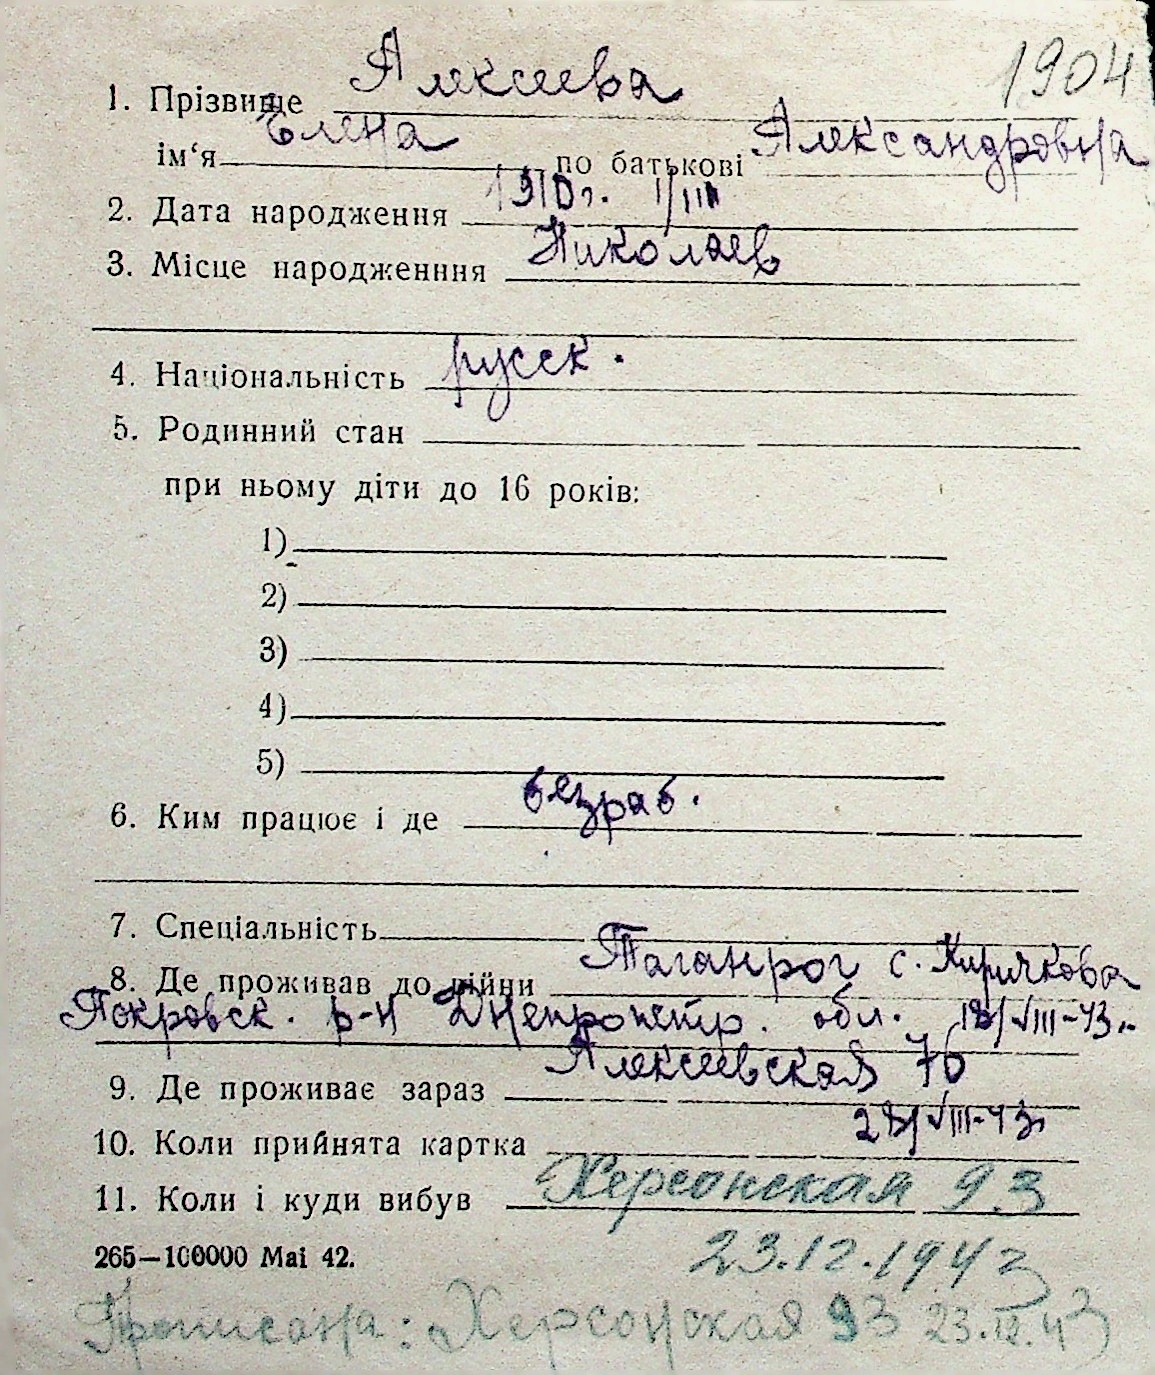 1904
1. Прізвище Алексеева
ім‘я Елена по батькові Александровна
2. Дата народження 1910г. 1/III
3. Місце народженння Николаев
4. Національність русск.
5. Родинний стан
при ньому діти до 16 років:
1)
2)
3)
4)
5)
6. Ким працює і де безраб.
7. Спеціальність
8. Де проживав до війни Таганрог с. Киричкова
Покровск. р-н Днепропетр. обл. 18/VIII-43г.
9. Де проживає зараз Алексеевская 76
10. Коли прийнята картка 28/VIII-43г
11. Коли і куди вибув Херсонская 93
265—100000 Mai 42. 23.12.1943
Прописана: Херсонская 93 23.12.43